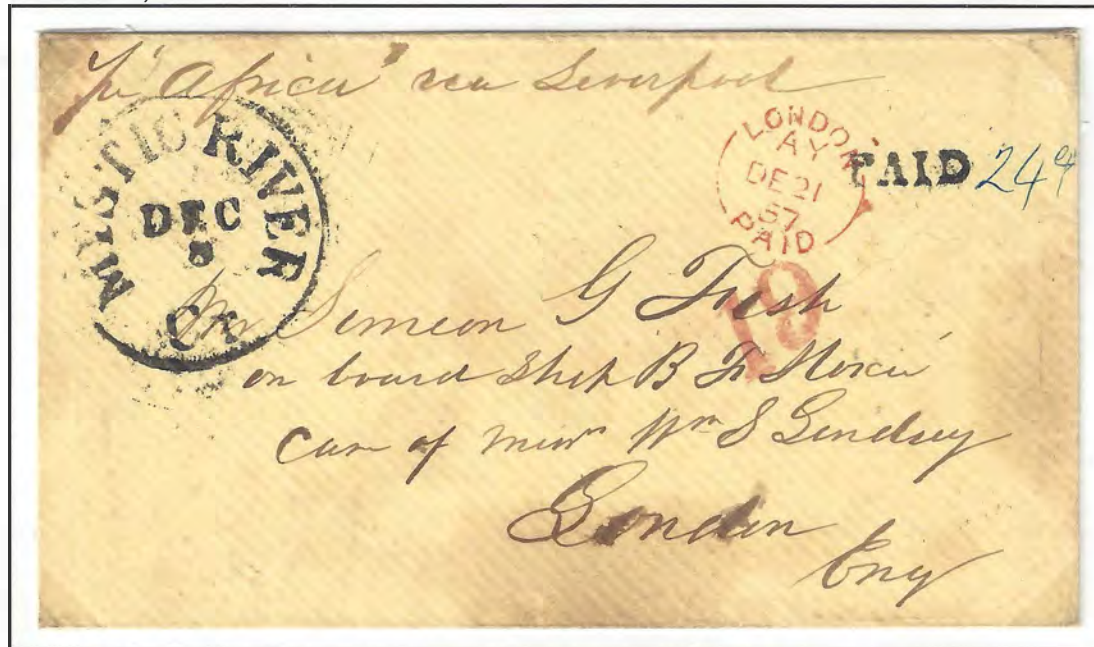 pr "Africa" via Liverpool
MISTIC RIVER
DEC
8
Ct
LONDON
AY
DE 21
57
PAID
PAID 24¢
19
Mr Simeon G Fish
on board Ship B F Hoxie
Care of Messrs Wm S Lindsey
London
Eng